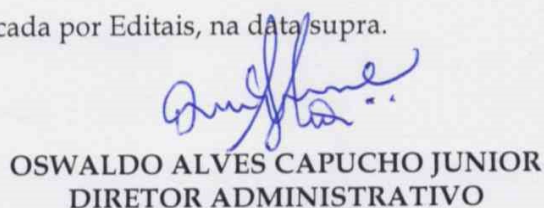 cada por Editais, na data supra.
OSWALDO ALVES CAPUCHO JUNIOR
DIRETOR ADMINISTRATIVO